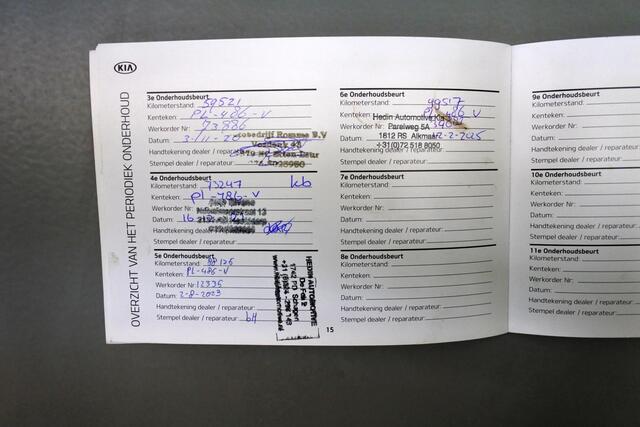 KIA
OVERZICHT VAN HET PERIODIEK ONDERHOUD
3e Onderhoudsbeurt
Kilometerstand: 59521
Kenteken: PL-486-V
Werkorder Nr: 73886
Datum: 3-11-20
Handtekening dealer / reparateur:
Stempel dealer / reparateur:
4e Onderhoudsbeurt
Kilometerstand: 73247 kb
Kenteken: PL-486-V
Werkorder Nr:
Datum: 16
Handtekening dealer / reparateur:
Stempel dealer / reparateur:
5e Onderhoudsbeurt
Kilometerstand:
Kenteken: PL-486-V
Werkorder Nr: 12335
Datum: 2-8-2023
Handtekening dealer / reparateur:
Stempel dealer / reparateur: bH
HEDIN AUTOMOTIVE
De Fok 2
1742 PD Schagen
15
6e Onderhoudsbeurt
Kilometerstand: 99517
Kenteken: PL-486-V
Werkorder Nr:
Datum: 12-2-2025
Handtekening dealer / reparateur:
Stempel dealer / reparateur:
Hedin Automotive
Parelweg 5A
1812 RS Alkmaar
+31(0)72 518 8050
7e Onderhoudsbeurt
Kilometerstand:
Kenteken:
Werkorder Nr:
Datum:
Handtekening dealer / reparateur:
Stempel dealer / reparateur:
8e Onderhoudsbeurt
Kilometerstand:
Kenteken:
Werkorder Nr:
Datum:
Handtekening dealer / reparateur:
Stempel dealer / reparateur:
9e Onderhoudsbeurt
Kilometerstand:
Kenteken:
Werkorder Nr:
Datum:
Handtekening dealer / re
Stempel dealer / repara
10e Onderhoudsbeurt
Kilometerstand:
Kenteken:
Werkorder Nr:
Datum:
Handtekening dealer / r
Stempel dealer / repara
11e Onderhoudsbeurt
Kilometerstand:
Kenteken:
Werkorder Nr:
Datum:
Handtekening dealer /
Stempel dealer / repar